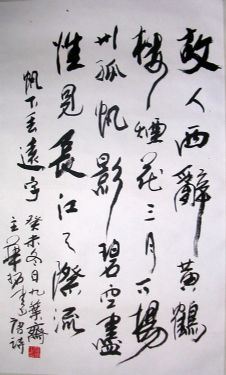 故人西辭黄鶴
樓煙花三月下揚
州孤帆影碧空盡
惟見長江天際流
帆下丢遠字 癸未冬日九華齋
主 書唐詩